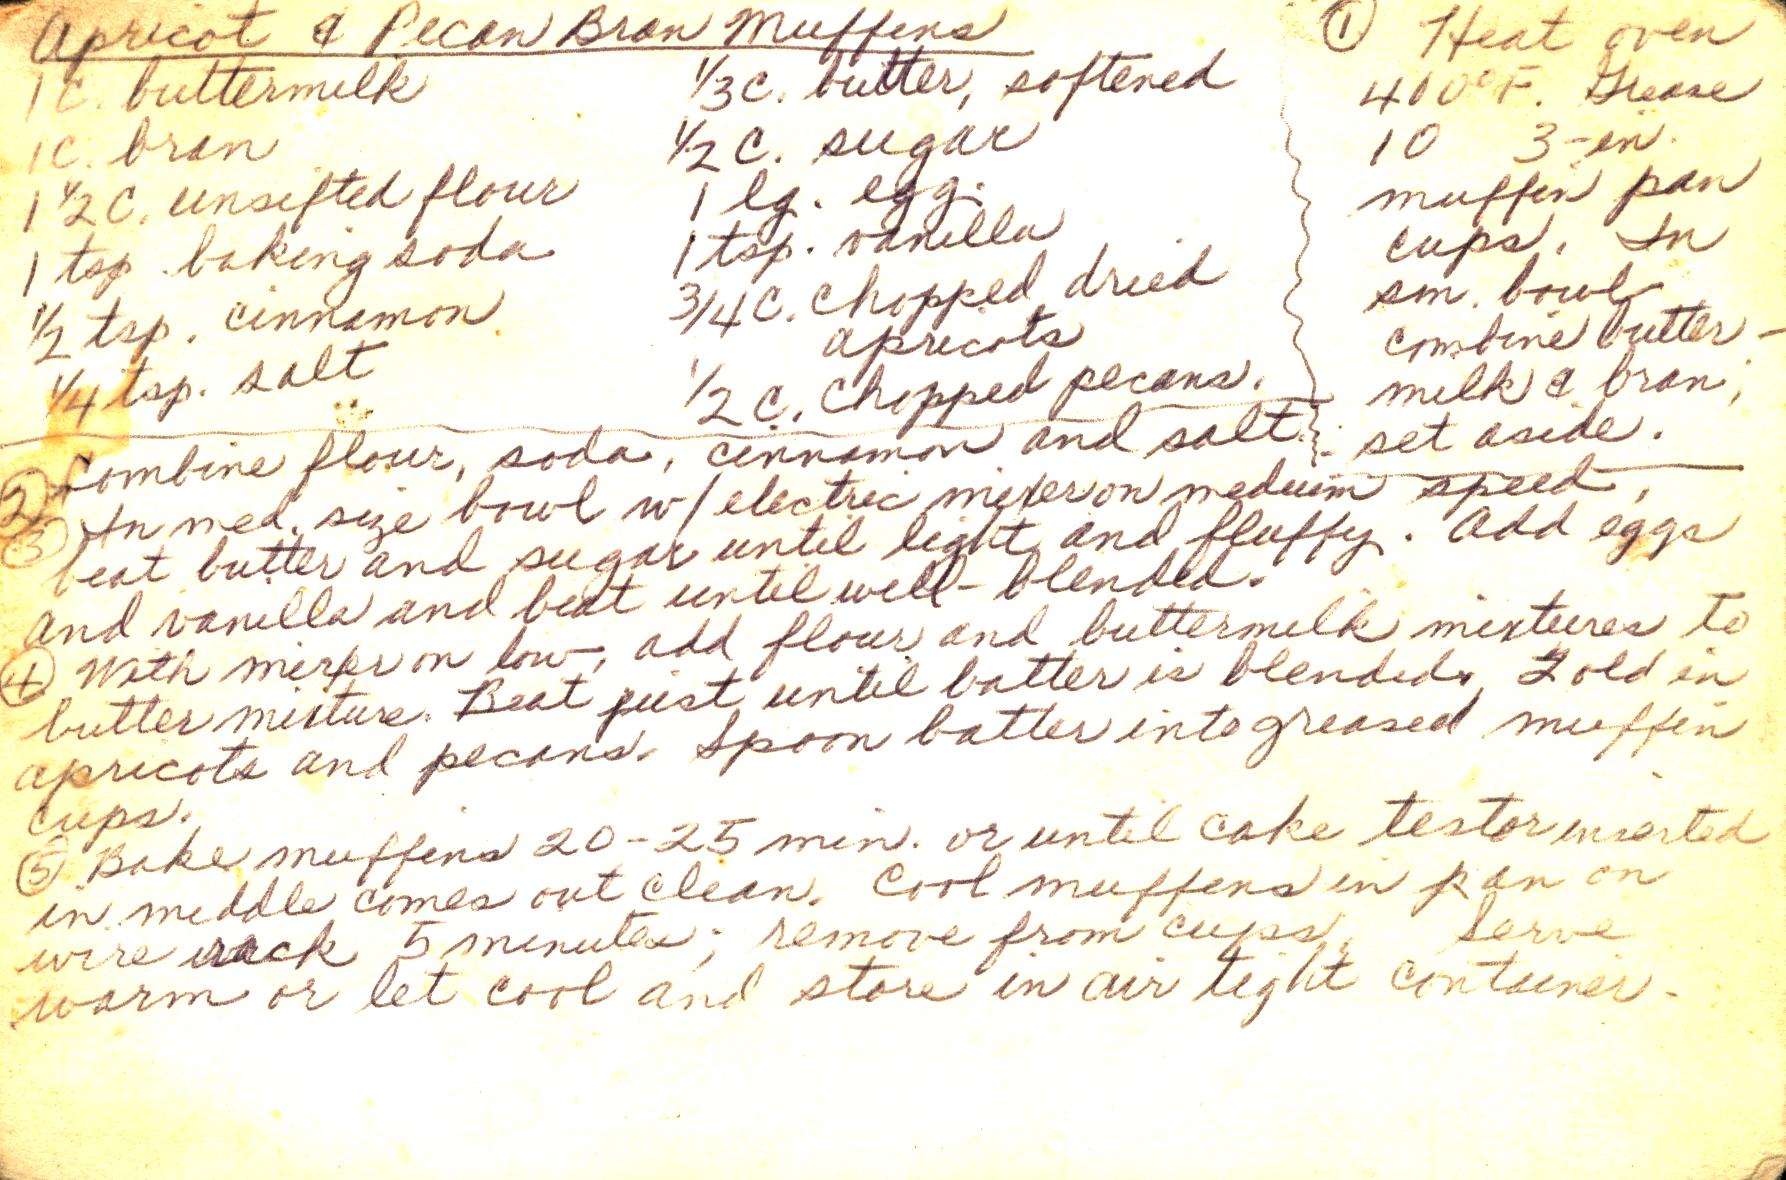 Apricot & Pecan Bran Muffins
1 C. buttermilk
1 C. bran
1 1/2 C. unsifted flour
1 tsp baking soda
1/2 tsp. cinnamon
1/4 tsp. salt
1/3 C. butter, softened
1/2 C. sugar
1 lg. egg.
1 tsp. vanilla
3/4 C. chopped dried
apricots
1/2 C. chopped pecans.
① Heat oven
400°F. Grease
10 3-in.
muffin pan
cups. In
sm. bowl
combine butter-
milk & bran;
set aside.
② Combine flour, soda, cinnamon and salt.
③ In med. size bowl w/ electric mixer on medium speed,
beat butter and sugar until light and fluffy. Add eggs
and vanilla and beat until well-blended.
④ With mixer on low, add flour and buttermilk mixtures to
butter mixture. Beat just until batter is blended. Fold in
apricots and pecans. Spoon batter into greased muffin
cups.
⑤ Bake muffins 20-25 min. or until cake testor inserted
in middle comes out clean. Cool muffins in pan on
wire rack 5 minutes; remove from cups. Serve
warm or let cool and store in air tight container.